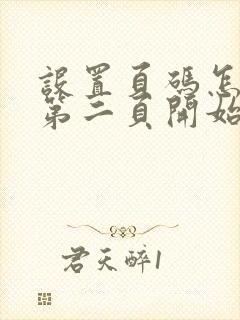 設置頁碼怎
第二頁開始
君天醉1